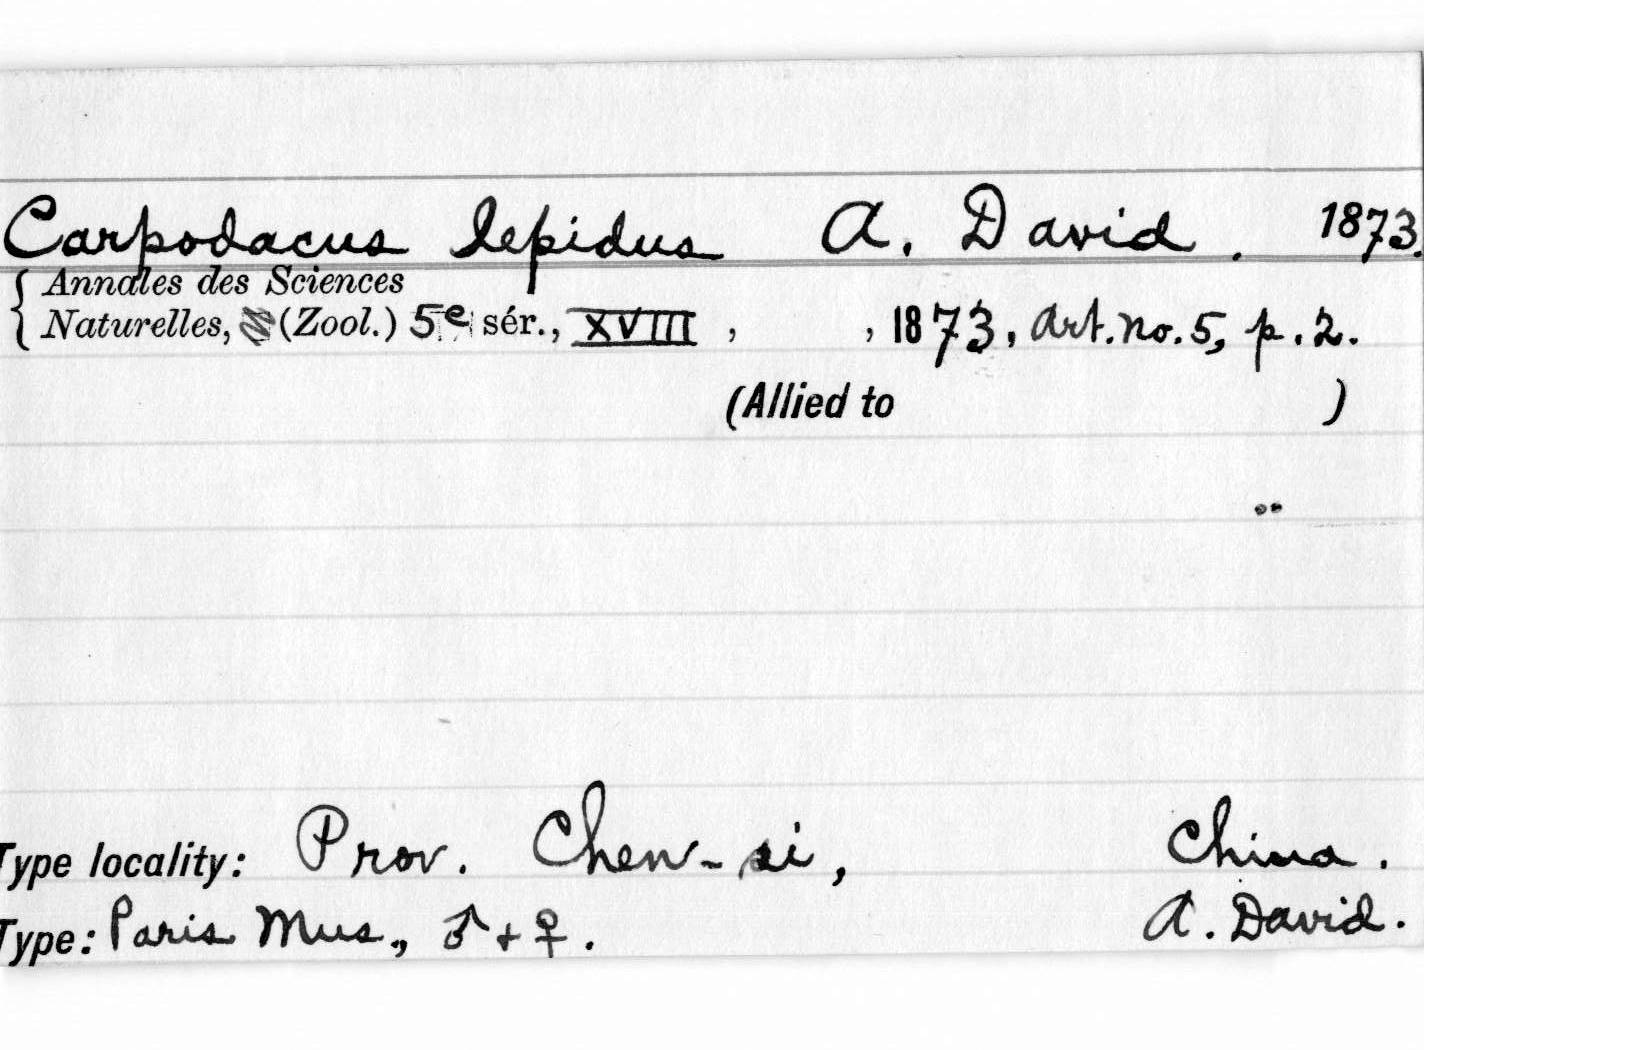 Carpodacus lepidus A. David. 1873.
Annales des Sciences
Naturelles, (Zool.) 5e sér., XVIII, , 1873, Art. no. 5, p. 2.
(Allied to )
Type locality: Prov. Chen-si, China.
Type: Paris Mus., ♂ + ♀. A. David.